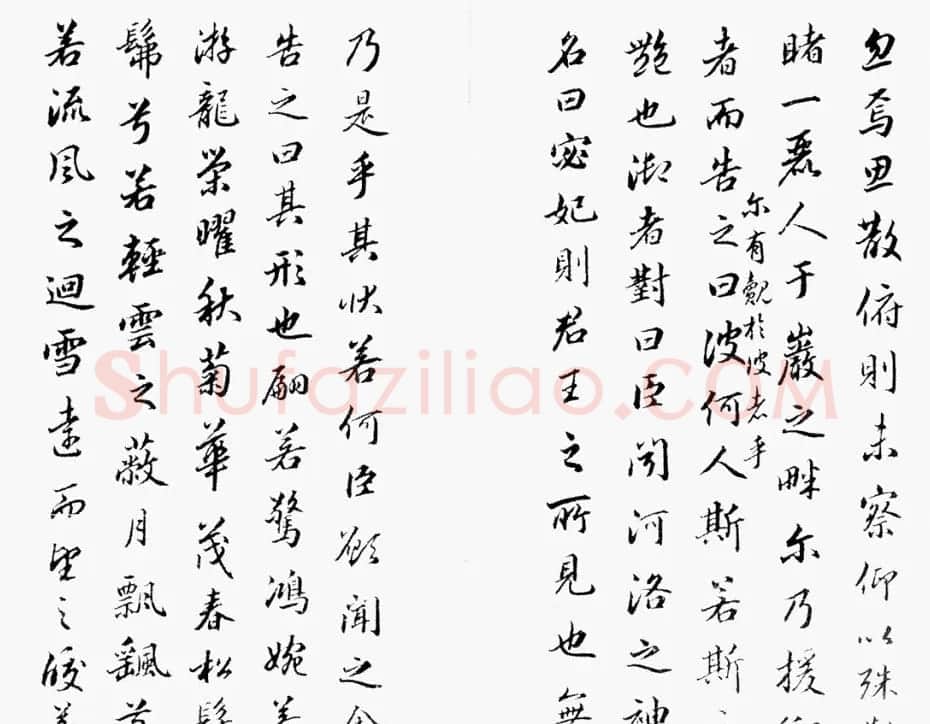 忽焉思散俯則未察仰以殊
睹一麗人于巖之畔尔乃援
者而告之曰彼何人斯若斯
尔有覿於彼者乎
艷也御者對曰臣聞河洛之神
名曰宓妃則君王之所見也無
乃是乎其狀若何臣願聞之余
告之曰其形也翩若驚鴻婉若
游龍榮曜秋菊華茂春松髣
髴兮若輕雲之蔽月飄颻兮
若流風之迴雪遠而望之皎若
Shufaziliao.com